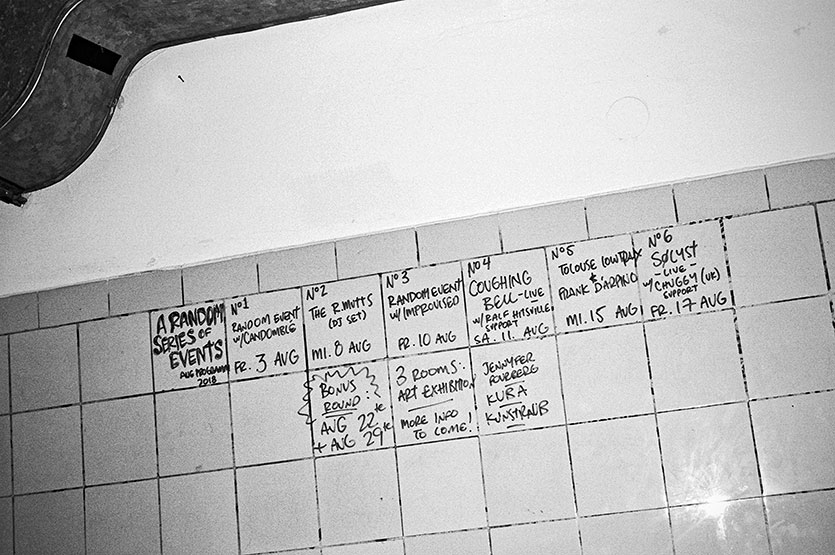 A RANDOM
SERIES OF
EVENTS
AUG PROGRAMM
2018
Nº1
RANDOM EVENT
W/CANDOMBLE
FR. 3 AUG
Nº2
THE R.MUTTS
(DJ SET)
MI. 8 AUG
Nº3
RANDOM EVENT
W/ IMPROVISED
FR. 10 AUG
Nº4
COUGHING
BELL-LIVE
W/ RALF HITSVILLE
SUPPORT
SA. 11. AUG
Nº5
TOLOUSE LOWTRAX
&
FRANK D'ARPINO
MI. 15 AUG
Nº6
SØLYST
- LIVE -
W/ CHUGGY (UK)
SUPPORT
FR. 17 AUG
BONUS
ROUND:
AUG 22te
+ AUG 29te
3 ROOMS:
ART EXHIBITION
MORE INFO
TO COME!
JENNYFER
KURA
KUNSTRAUB